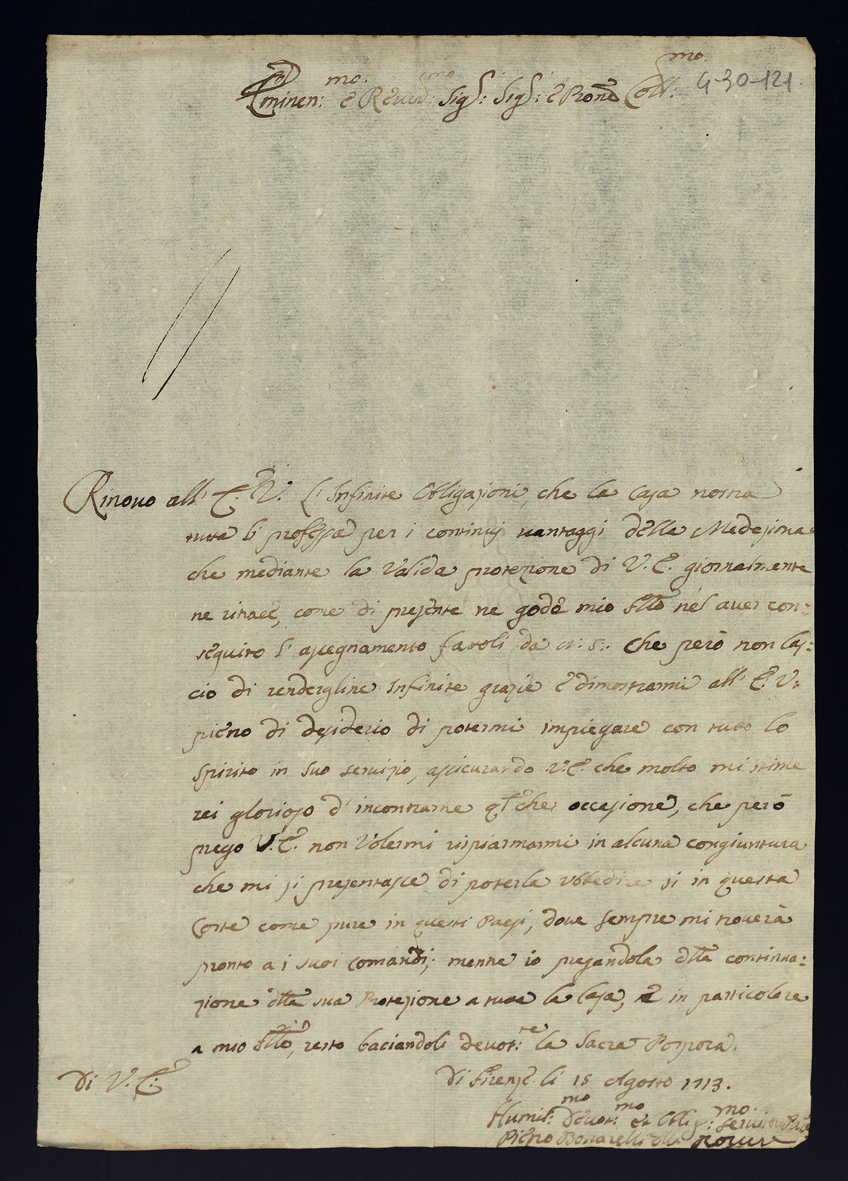 4-30-121
Eminen:mo e Reverd:mo Sig: Sig: e Prone Coll:mo
Rinovo all' E: V: l'Infinite Obligazioni, che la Casa nostra
tutta li professa per i continuj vantaggi della Medesima
che mediante la Valida protezione di V. E. giornalmente
ne ritrae, come di presente ne gode mio Fllo nel aver con:
seguito l'assegnamento fatoli da N. S. che però non las:
cio di rendergline Infinite grazie e dimostrarmi all' E. V.
pieno di desiderio di potermi impiegare con tutto lo
spirito in suo servizio, assicurando V. E. che molto mi stime
rei glorioso d'incontrarne qlche occasione, che però
prego V. E. non Volermi risparmiarmi in alcuna congiuntura
che mi si presentasse di poterla Vbbedire si in questa
Corte come pure in questi Paesi, dove sempre mi troverà
pronto a i suoi comandi; mentre io pregandola dlla continua:
zione dlla sua Protezione a tutta la Casa, e in particolare
a mio Fllo, resto baciandoli devot:te la Sacra Porpora.
Di V. E.
Di Firenze li 15 Agosto 1713.
Humil:mo Devot:mo et Oblig:mo
Pietro Bonarelli dlla Rovere